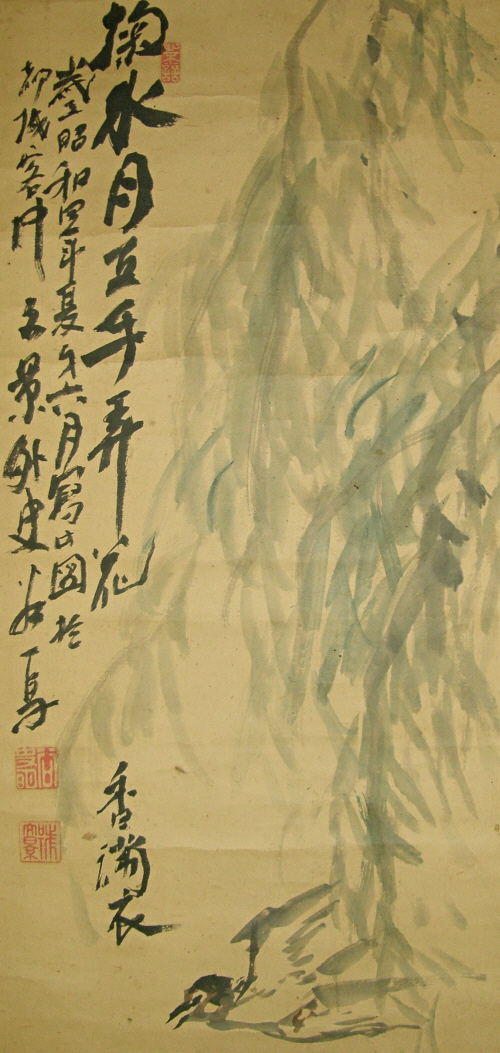 掬水月在手弄花
香滿衣
昭和四年夏六月寫此図於
柳城客中 景外史 寫